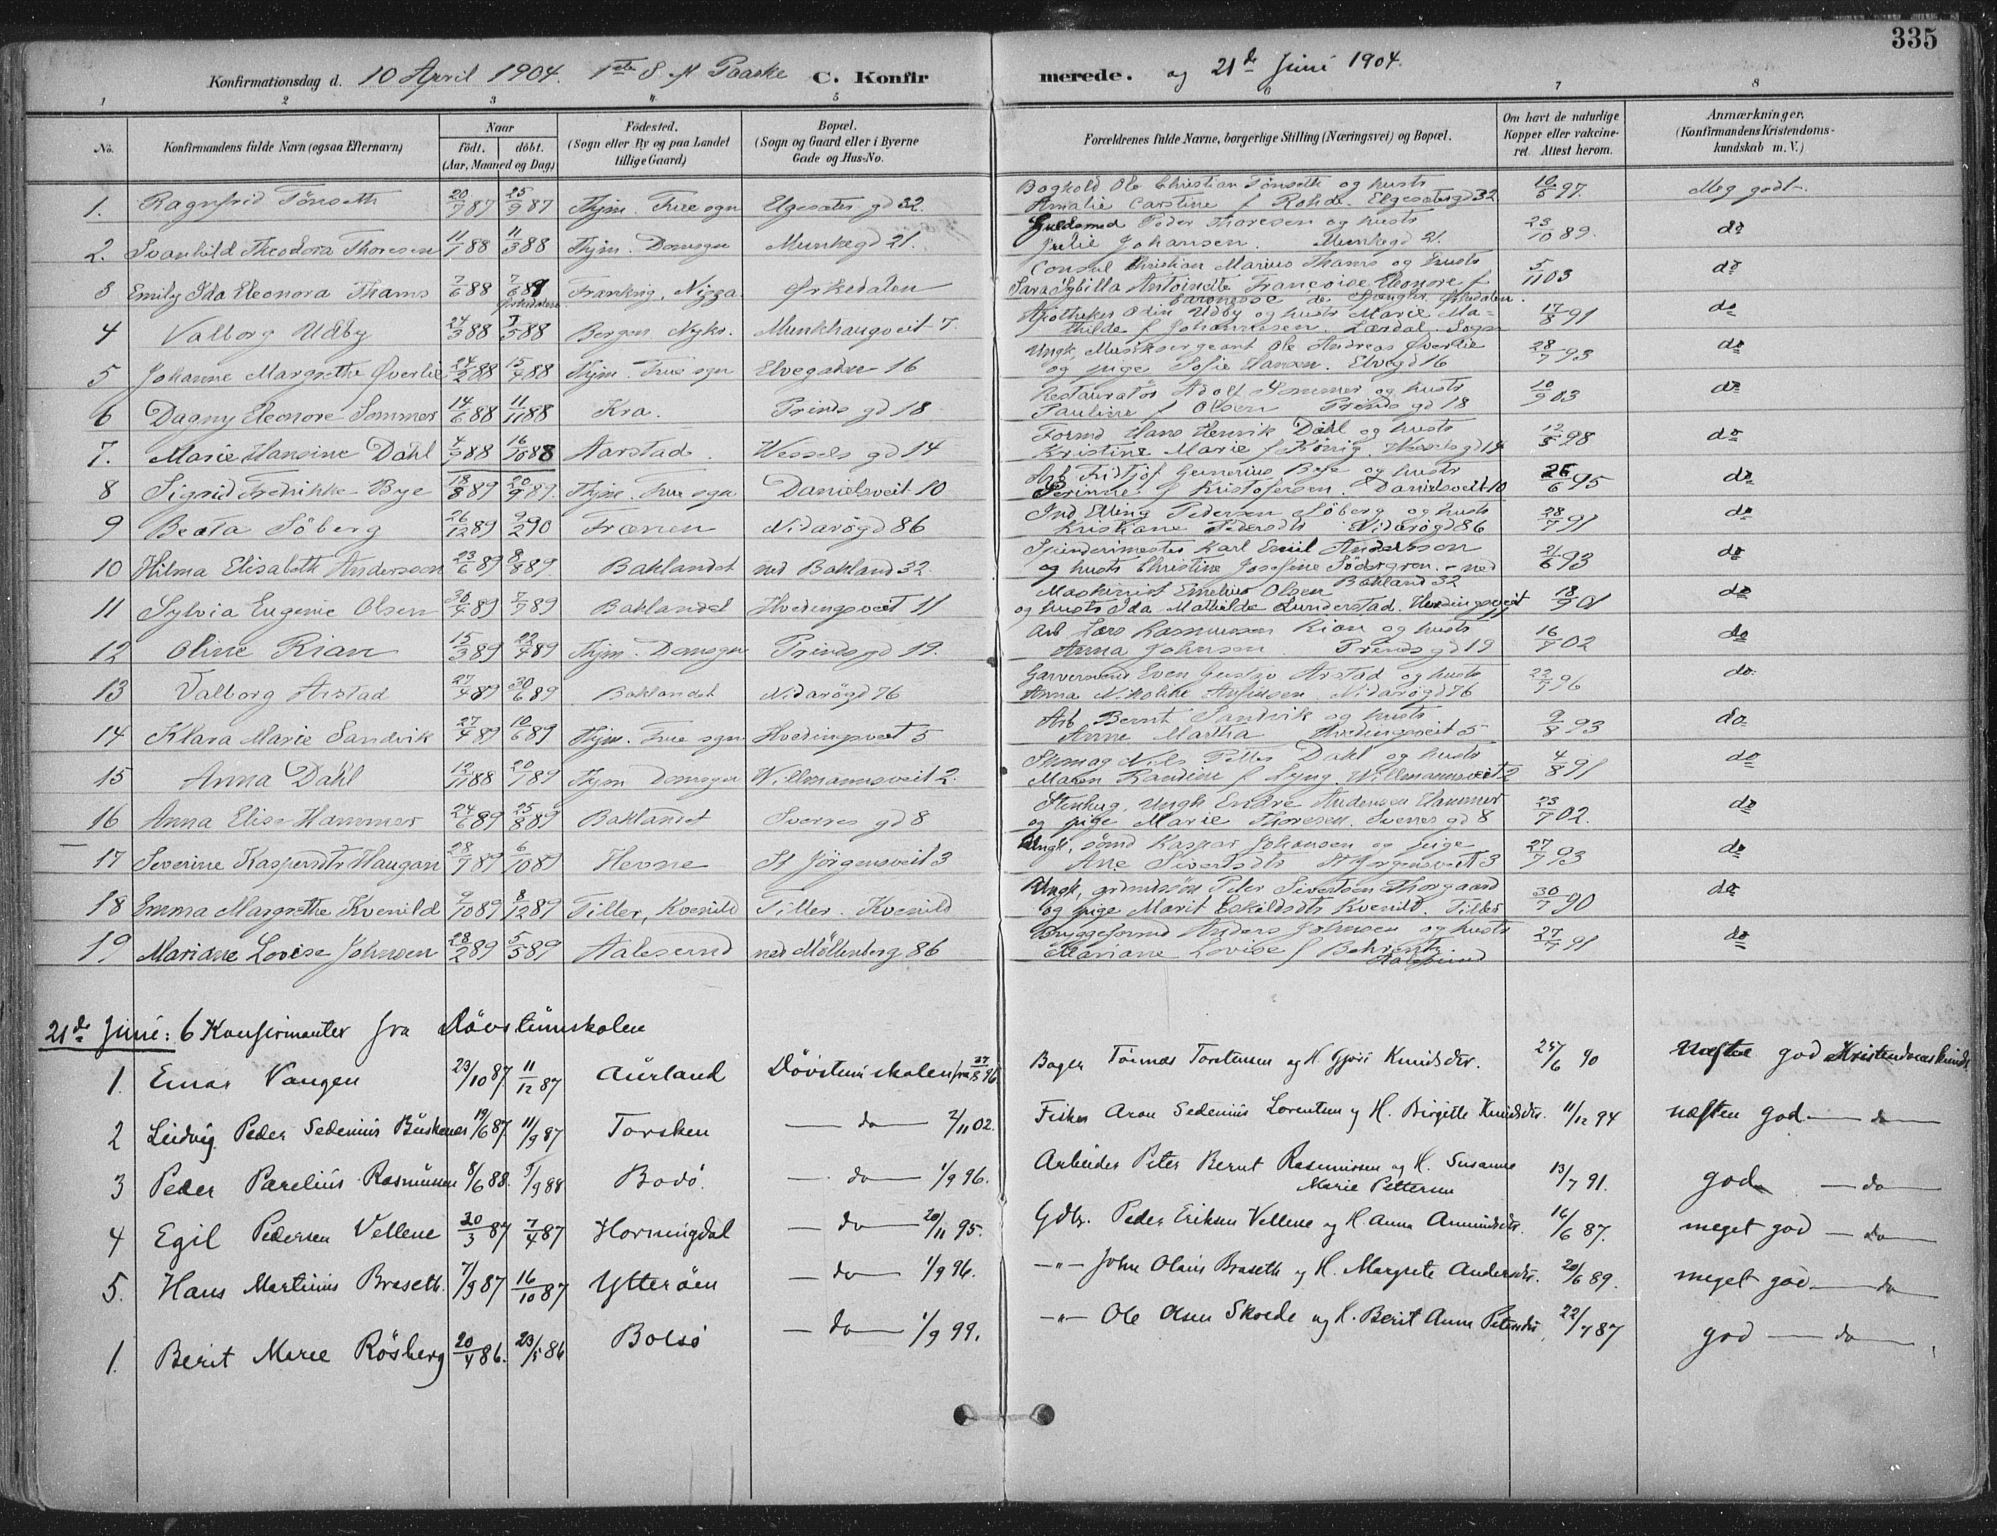 335
Konfirmationsdag d. 10 April 1904. 1ste S. f Paaske C. Konfirmerede. og 21de Juni 1904.
1 2 3 4 5 6 7 8
No. Konfirmandens fulde Navn (ogsaa Efternavn) Naar født. døbt. (Aar, Maaned og Dag) Fødested. (Sogn eller By og paa Landet tillige Gaard) Bopæl. (Sogn og Gaard eller i Byerne Gade og Hus-No. Forældrenes fulde Navne, borgerlige Stilling (Næringsvei) og Bopæl. Om havt de naturlige Kopper eller vakcineret. Attest herom. Anmærkninger. (Konfirmandens Kristendomskundskab m. V.)
1. Ragnfrid Tönseth 20/7 87 25/9 87 Thjm. Frue sogn Elgesæter gd 32. Boghold Ole Christian Tönseth og hustr Amalie Carstine f Rohde. Elgesætergd 32 10/5 97. Meg godt
2. Svanhild Theodora Thoresen 11/1 88 11/3 88 Thjm. Domsogn Munkegd 21. Guldsmed Peder Thoresen og hustr Julie Johansen. Munkegd 21. 23/10 89. do
3 Emily Ida Eleonora Thams 7/6 88 7/6 89 Orkedalen Frankrig, Nizza. Orkedalen Consul Christian Marius Thams og hustr Sara Sybilla Antoinette Francoise Eleonore f baronesse de Orkedalen. 5/11 03 do
4 Valborg Udby 24/3 88 7/5 88 Bergen Nyks. Munkhaugveit 7 Apotheker Odin Udby og hustr Marie Mathilde f Johannesen. Lærdal. Sogn 17/8 91 do
5 Johanne Margrethe Øverlie 24/2 88 15/4 88 Thjm. Frue sogn Elvegaden 16 Ungk, Musiksergeant Ole Andreas Øverlie og pige Sofie Hansen. Elvegd 16 28/7 93 do
6 Dagny Eleonore Sommer 14/6 88 11/11 88 Kra. Prinds gd 18 Restauratör Adolf Sommer og hustr Pauline f Olsen Prinds gd 18 10/9 03 do
7. Marie Hansine Dahl 4/9 88 16/10 88 Aarstad. Wessels gd 14 Formd Hans Henrik Dahl og hustr Kristine Marie f König. Wessels gd 14 12/5 98 do
8 Sigrid Fredrikke Bye 18/8 89 20/9 89. Thjm. Frue sogn Danielsveit 10 Arb Fridtjof Bye og hustr Serinne f Kristofersen. Danielsveit 10 26/6 95 do
9 Beata Söberg 26/12 89 9/2 90 Frænen Nidarögd 86 Ind Elling Pedersen Söberg og hustr Kristiane Pedersdtr Nidarögd 86 28/7 91 do
10 Hilma Elisabeth Andersson 23/6 89 8/8 89. Baklandet ned Bakland 32. Spinderimester Karl Emil Andersson og hustr Christine Josefine Södergren. ned Bakland 32 21/6 93 do
11 Sylvia Eugenie Olsen 30/4 89 7/7 89 Baklandet Hvedingsveit 11 Maskinist Emelius Olsen og hustr Ida Mathilde Lunderstad. Hvedingsveit 11 18/9 01 do
12 Oline Rian 15/3 89 22/4 89 Thjm. Domsogn Prinds gd 19. Arb Lars Rasmussen Rian og hustr Anna Johnsen Prinds gd 19 16/7 02 do
13 Valborg Arstad 27/4 89 30/6 89 Baklandet Nidarögd 76 Garversvend Even Gustav Arstad og hustr Anna Nikoline Nidarögd 76 22/7 96 do.
14 Klara Marie Sandvik 27/4 89 10/6 89 Thjm. Frue sogn Hvedingsveit 5 Arb Bernt Sandvik og hustr Anne Martha Hvedingsveit 5 9/8 93 do
15 Anna Dahl 12/11 88 20/1 89 Thjm Domsogn Willmannsveit 2. Nils Petter Dahl og hustr Maren Randine f Lyng Willmannsveit 2 4/8 91 do
16 Anna Elise Hammer 24/6 89 25/8 89 Baklandet Sverres gd 8 Stenhug, Ungk Endre Andersen Hammer og pige Marie Thoresen. Sverres gd 8 23/7 02. do
17 Severine Kaspersdtr Haugan 28/7 89 6/10 89 Hevne St Jörgensveit 3 Ungk, sömd Kaspar Johansen og pige Ane Sivertsdtr St Jörgensveit 3 27/7 93 do
18 Emma Margrethe Kvenild 9/10 89 8/12 89 Tiller, Kvenild Tiller. Kvenild Ungk, grdmdssön Peter Sivertsen Thorgaard og pige Marit Eskildsdtr Kvenild. Tiller 30/7 90 do
19 Mariane Lovise Johnsen 28/2 89 5/5 89 Aalesund ned Møllenberg 86 Bryggeformd Anders Johnsen og hustr Mariane Lovise f Bahrentz Aalesund 27/7 91 do
21de Juni: 6 Konfirmanter fra Døvstumskolen
1. Einar Vangen 23/10 87 11/12 87 Aurland Døvstumskolen fra 27/8 96 Bager Tomas Torstensen og H. Gjöri Knudsdtr. 25/6 90 næsten god Kristendomskundsk
2 Ludvig Peder Sedenius Buskenes 19/6 87 11/9 87 Torsken — do — 2/11 02. Fisker Aron Sedenius Lorentsen og H. Birgitte Knudsdtr. 11/12 94 næsten god — do —
3 Peder Parelius Rasmussen 8/6 88 9/9 88 Bodö. — do — 1/9 96. Arbeider Peter Bernt Rasmussen og H. Susanne Marie Pettersen 13/7 91. god — do —
4 Egil Pedersen Vellene 20/3 87 7/4 87 Horningdal — do — 20/11 95. Gdbr. Peder Eriksen Vellene og H. Anna Amundsdtr. 16/6 87. meget god — do —
5. Hans Martinius Braseth. 7/9 87 16/10 87 Ytterøen — do — 1/9 96. —"— John Olaus Braseth og H. Margrete Andersdtr. 20/6 89. meget god — do —
1. Berit Marie Rösberg 20/4 86. 23/5 86 Bolsø — do — 1/9 99. —"— Ole Olsen Skrede og H. Berit Anne Petersdtr. 22/7 87 god — do —